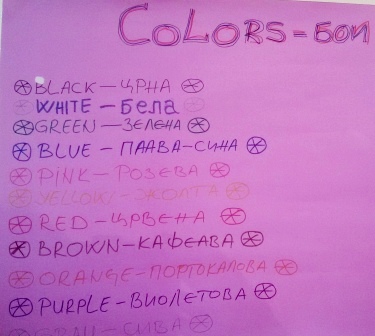 COLORS - БОИ
BLACK - ЦРНА
WHITE - БЕЛА
GREEN - ЗЕЛЕНА
BLUE - ПЛАВА - СИНА
PINK - РОЗЕВА
YELLOW - ЖОЛТА
RED - ЦРВЕНА
BROWN - КАФЕАВА
ORANGE - ПОРТОКАЛОВА
PURPLE - ВИОЛЕТОВА
GRAY - СИВА